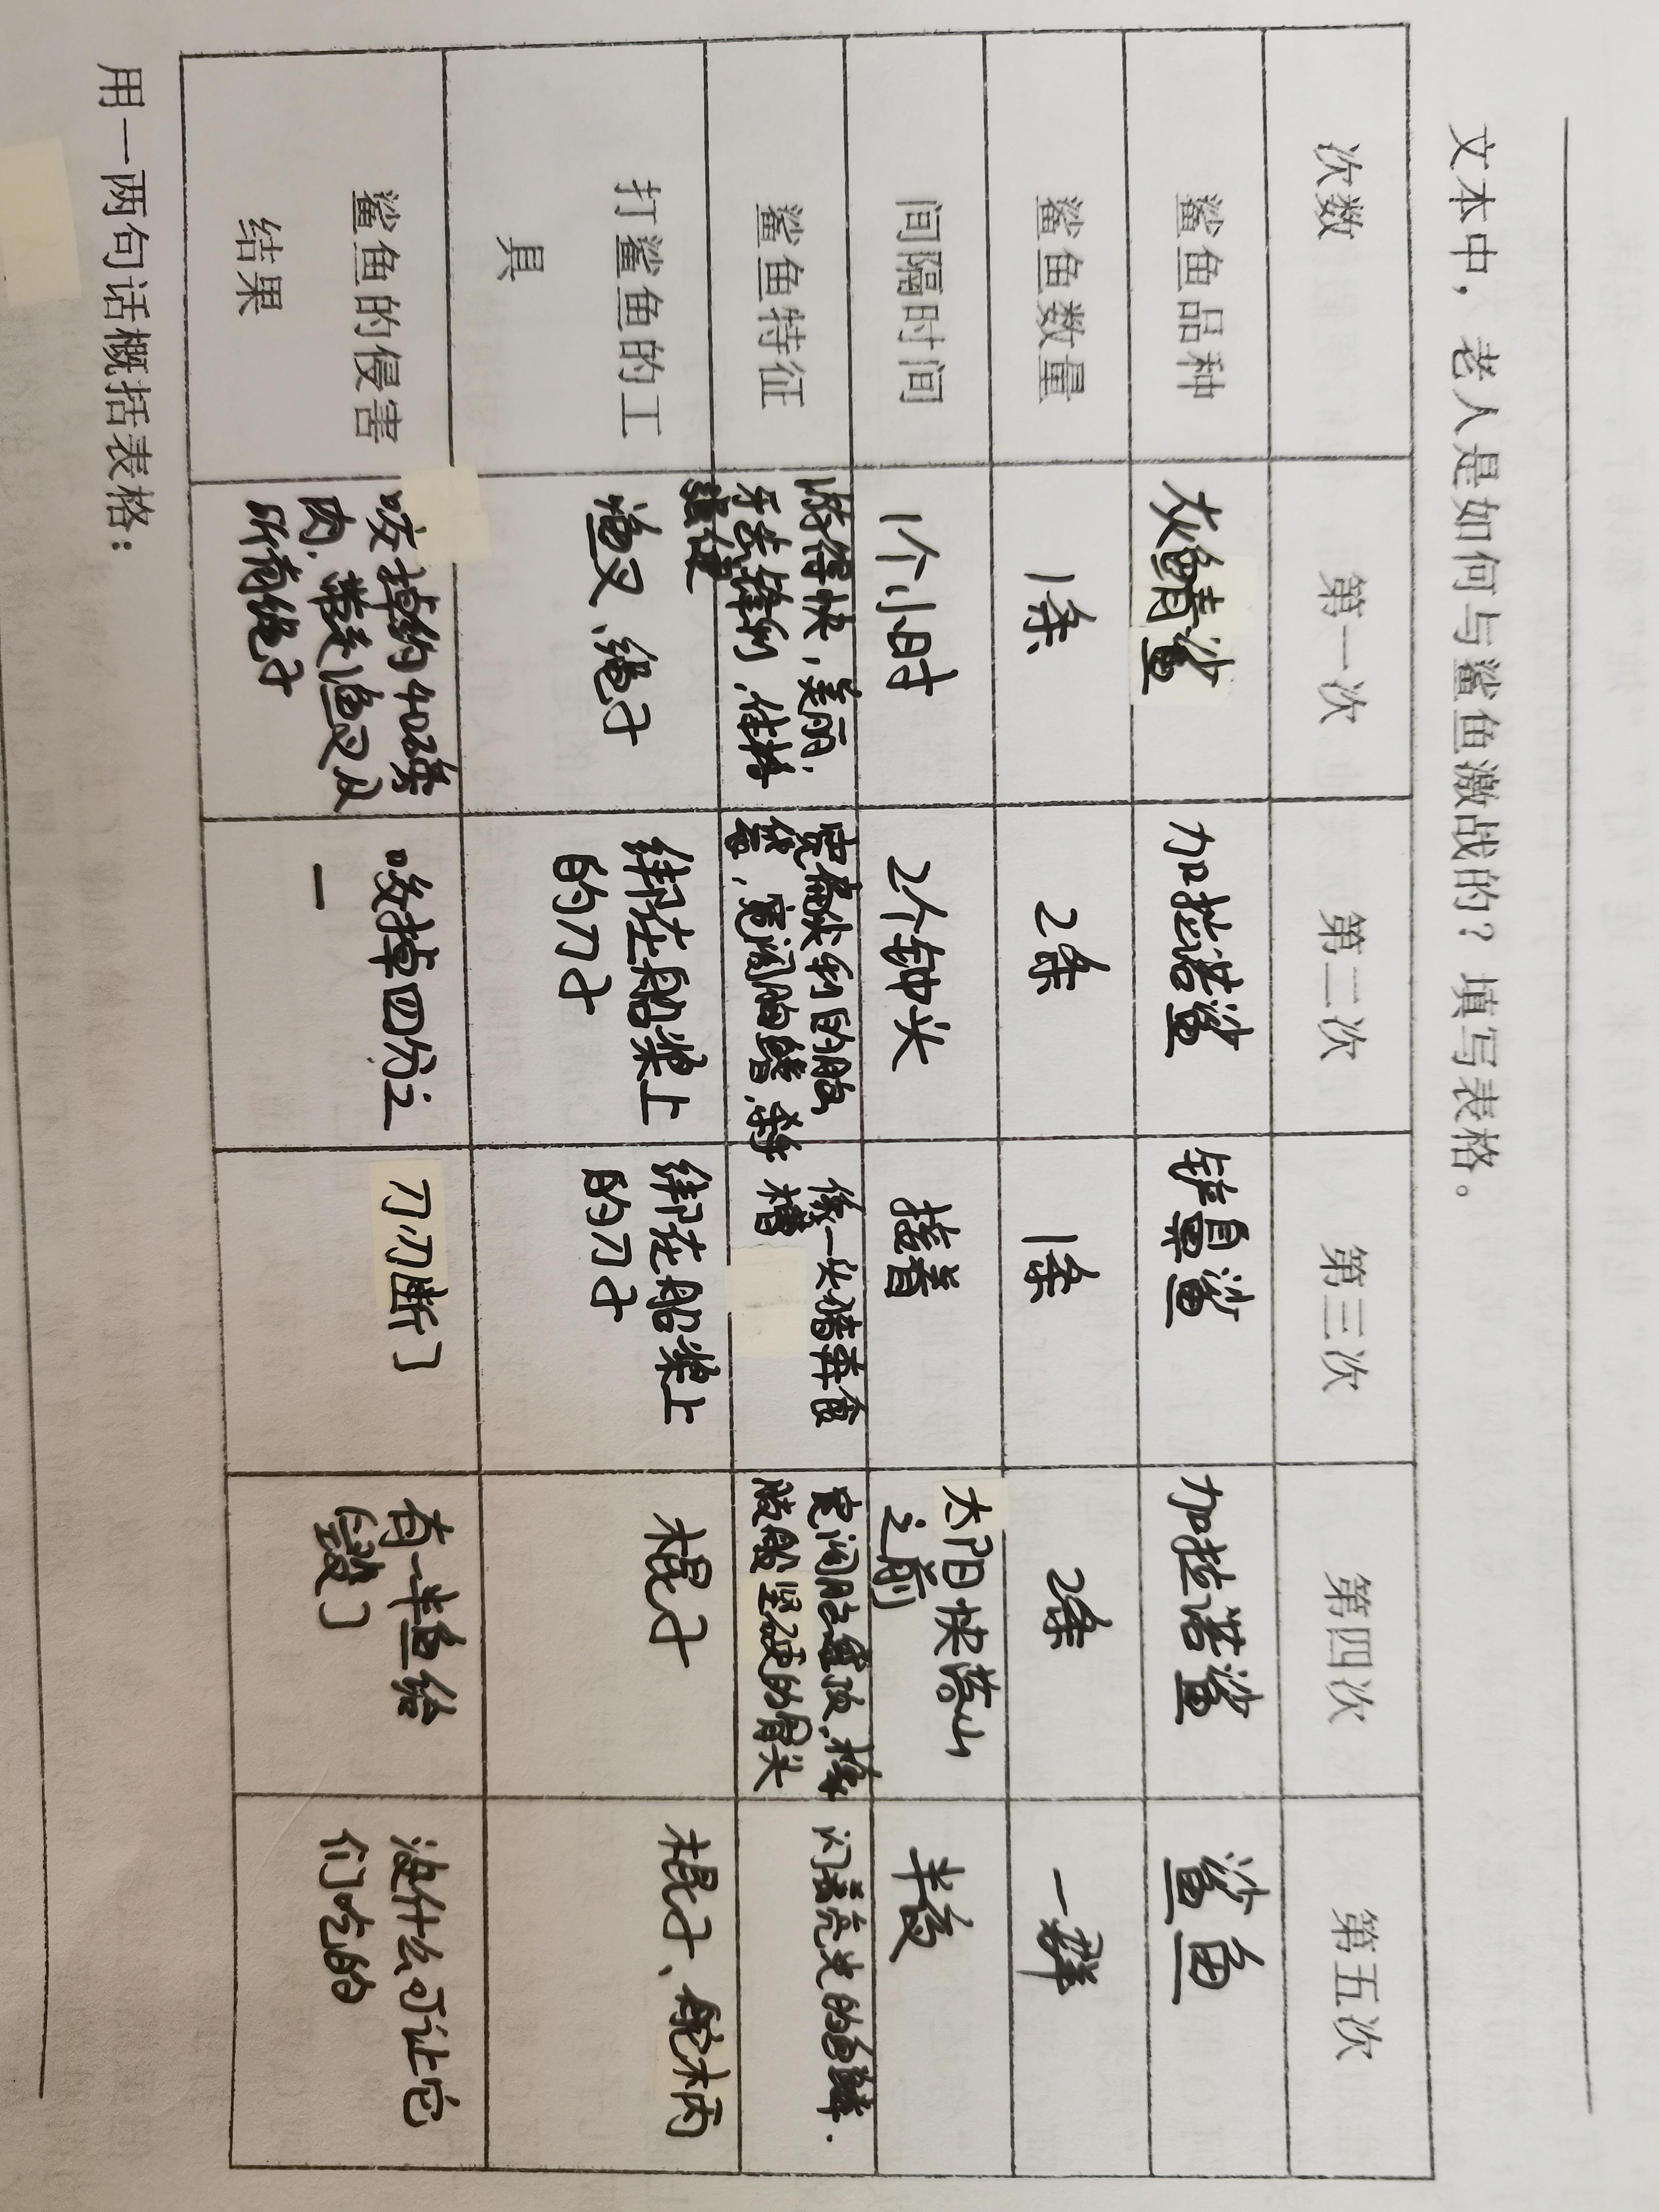 文本中，老人是如何与鲨鱼激战的？填写表格。
次数
第一次
第二次
第三次
第四次
第五次
鲨鱼品种
灰鲭鲨
加拉诺鲨
铲鼻鲨
加拉诺鲨
鲨鱼
鲨鱼数量
1条
2条
1条
2条
一群
间隔时间
1个小时
2个钟头
接着
太阳快落山
之前
半夜
鲨鱼特征
游得快，美丽，
牙齿锋利，体格
强健
宽扁尖利的脑
袋，宽阔胸鳍，
像一头猪奔食
槽
宽阔脑
般坚硬的骨头
闪着亮光的鱼鳞.
打鲨鱼的工
具
渔叉、绳子
绑在船桨上
的刀子
绑在船桨上
的刀子
棍子
棍子、舵柄
鲨鱼的侵害
结果
咬掉约40磅
肉，带走渔叉及
所有绳子
咬掉四分之
一
刀刃断了
有一半鱼给
毁了
没什么可让它
们吃的
用一两句话概括表格：